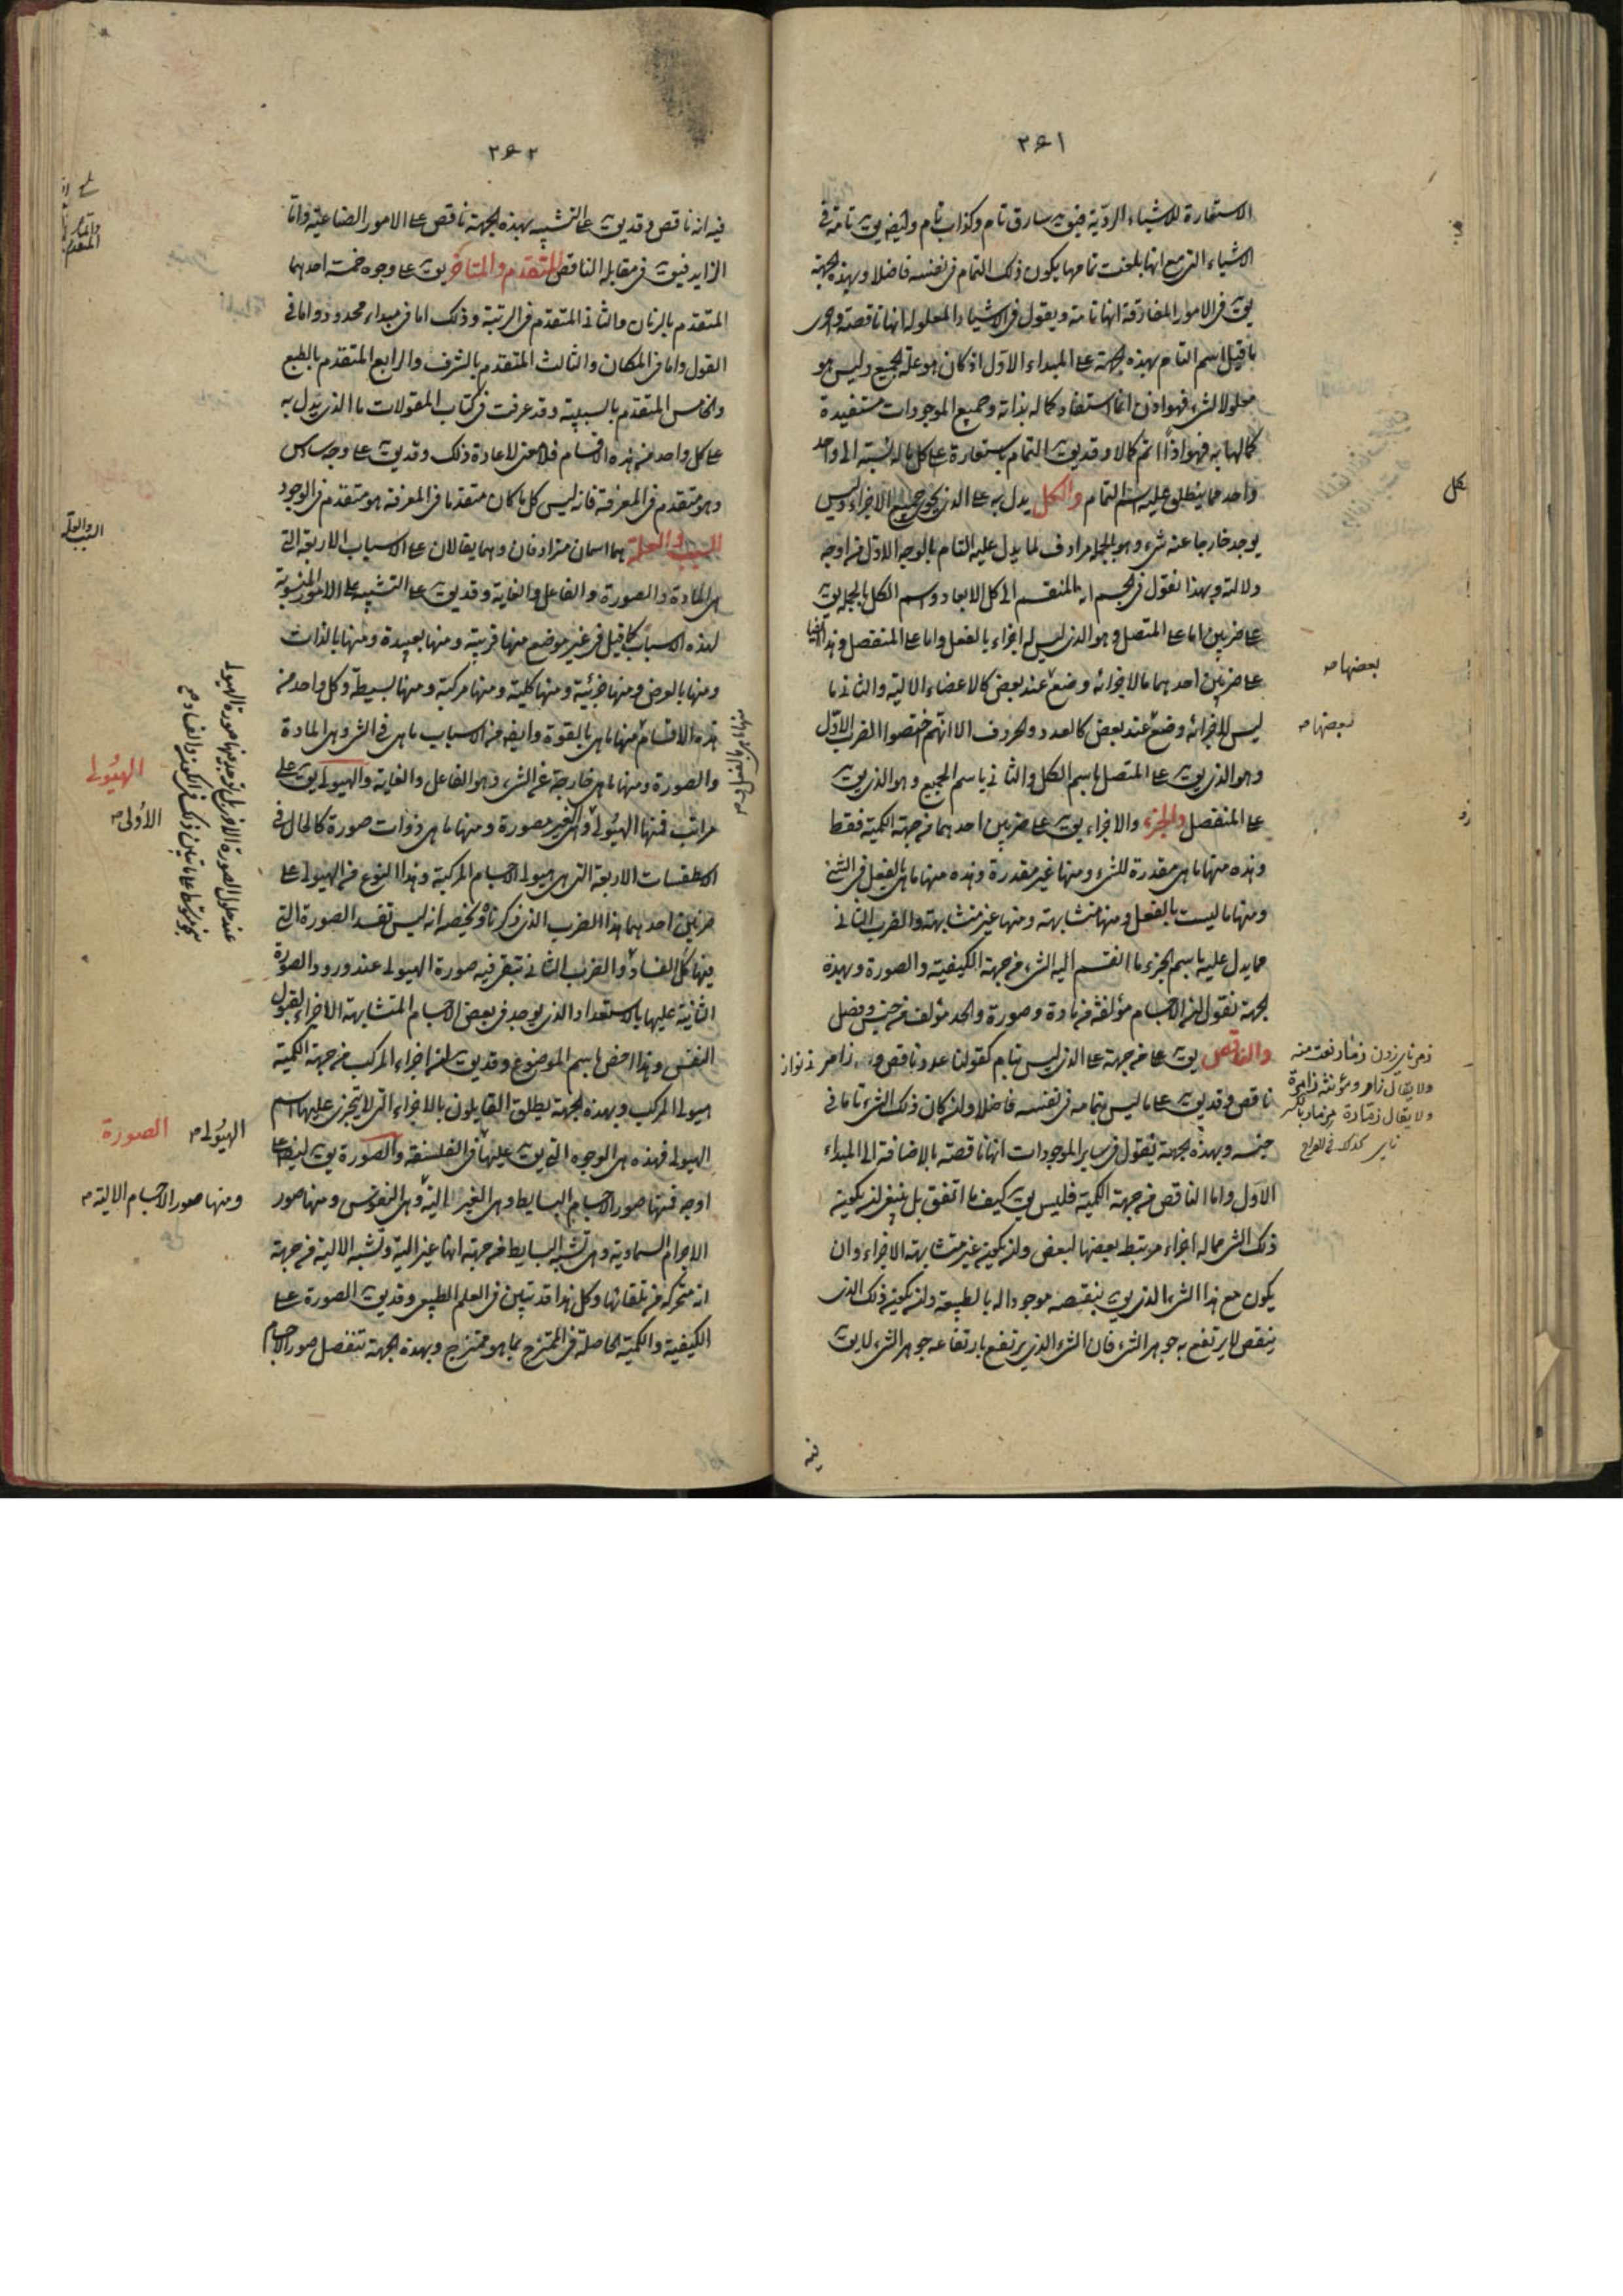 ٣٤١
الاستعارة للاشياء الردّية فيق سارق تام وكذاب تام وايضا يق تامة في
الاشياء التي مع انها بلغت تمامها يكون ذلك التمام في نفسه فاضلا وبهذه الجهة
يق في الامور المفارقة انها تامة ويقول في الاشياء المعلولة انها ناقصة واحرى
ما قيل اسم التام بهذه الجهة على المبداء الاوّل اذ كان هو علة الجميع وليس هو
معلولا لشىء فهو اذن انما استفاد كماله بذاته وجميع الموجودات مستفيدة
كمالها به فهو اذاً اتم كمالا وقد يق التمام باستعارة على كل ما له نسبة الى واحد
واحد مما ينطلق عليه اسم التمام والكل يدل به على الذي يحوى جميع الاجزاء وليس
يوجد خارجا عنه شىء وهو بالجملة مرادف لما يدل عليه التام بالوجه الاوّل من اوجه
دلالته وبهذا نقول في الجسم انه المنقسم الى كل الابعاد واسم الكل بالجملة يق
على ضربين اما على المتصل وهو الذي ليس له اجزاء بالفعل واما على المنفصل وهذا ايضا
على ضربين احدهما ما لاجزائه وضع عند بعض كالاعضاء الالية والثاني ما
ليس لاجزائه وضع عند بعض كالعدد والحروف الا انهم خصوا الضرب الاوّل
وهو الذي يق على المتصل باسم الكل والثاني باسم الجميع وهو الذي يق
على المنفصل والجزء والاجزاء يق على ضربين احدهما من جهة الكمية فقط
وهذه منها ما هي مقدرة للشىء ومنها غير مقدرة وهذه منها ما هي بالفعل في الشىء
ومنها ما ليست بالفعل ومنها متشابهة ومنها غير متشابهة والضرب الثاني
مما يدل عليه باسم الجزء ما انقسم اليه الشىء من جهة الكيفية والصورة وبهذه
الجهة نقول ان الاجسام مؤلفة من مادة وصورة والحد مؤلف من جنس وفصل
والناقص يق على من جهة على الذي ليس بتام كقولنا عدد ناقص و زامر
ناقص وقد يق على ما ليس بتمامه في نفسه فاضلا وان كان ذلك الشىء تاما في
جنسه وبهذه الجهة نقول في ساير الموجودات انها ناقصة بالاضافة الى المبداء
الاوّل واما الناقص من جهة الكمية فليس يق كيف ما اتفق بل ينبغي ان يكون
ذلك الشىء مما له اجزاء مرتبط بعضها لبعض وان يكون غير متشابهة الاجزاء وان
يكون مع هذا الشىء الذي يق بنقصه موجودا له بالطبيعة وان يكون ذلك الذي
ينقص لا يرتفع به جوهر الشىء فان الشىء الذي يرتفع بارتفاعه جوهر الشىء لا يق
فيه
بعضها
لبعضها
ولا يقال زامر ومؤنثه زامرة
ولا يقال زمارة
٣٤٢
فيه انه ناقص وقد يق على التشبيه بهذه الجهة ناقص على الامور الصناعية واما
الزايد فيق في مقابلة الناقص المتقدم والمتاخر يق على وجوه خمسة احدهما
المتقدم بالزمان والثاني المتقدم في الرتبة وذلك اما في مبداء محدود واما في
القول واما في المكان والثالث المتقدم بالشرف والرابع المتقدم بالطبع
والخامس المتقدم بالسببية وقد عرفت في كتاب المقولات ما الذي يدل به
على كل واحد من هذه الاقسام فلا معنى لاعادة ذلك وقد يق على وجه سادس
وهو متقدم في المعرفة فانه ليس كل ما كان متقدما في المعرفة هو متقدم في الوجود
السبب والعلة هما اسمان مترادفان وهما يقالان على الاسباب الاربعة التي
هي المادة والصورة والفاعل والغاية وقد يق على التشبيه على الامور المنسوبة
لهذه الاسباب كما قيل في غير موضع منها قريبة ومنها بعيدة ومنها بالذات
ومنها بالعرض ومنها جزئية ومنها كلية ومنها مركبة ومنها بسيطة وكل واحد من
هذه الاقسام منها ما هي بالقوة وايضا من الاسباب ما هي في الشىء وهي المادة
والصورة ومنها ما هي خارجة عن الشىء وهو الفاعل والغاية والهيولى يق على
مراتب فمنها الهيولى وهي الغير مصورة ومنها ما هي ذوات صورة كالحال في
الاسطقسات الاربعة التي هي هيولى الاجسام المركبة وهذا النوع من الهيولى على
ضربين احدهما هذا الضرب الذي ذكرناه ويخصه انه ليس تفسد الصورة التي
فيها كل الفساد والضرب الثاني تبقى فيه صورة الهيولى عند ورود الصورة
الثانية عليها بالاستعداد الذي يوجد في بعض الاجسام المتشابهة الاجزاء لقبول
النفس وهذا اخص باسم الموضوع وقد يق ان اجزاء المركب من جهة الكمية
هيولى المركب وبهذه الجهة يطلق القايلون بالاجزاء التي لا يتجزى عليها اسم
الهيولى فهذه هي الوجوه التي يق عليها في الفلسفة والصورة يق ايضا على
اوجه فمنها صور الاجسام البسايط وهي الغير الية وهي النفوس ومنها صور
الاجرام السماوية وهي تشبه البسايط من جهة انها غير الية وتشبه الالية من جهة
انه متحركة من تلقائها وكل هذا قد تبين في العلم الطبيعي وقد يق الصورة على
الكيفية والكمية الحاصلة في الممتزج بما هو ممتزج وبهذه الجهة تنفصل صور الاجسام
والعلة
السبب
الهيولى
الاولى
الهيولى
الصورة
ومنها صور الاجسام الالية